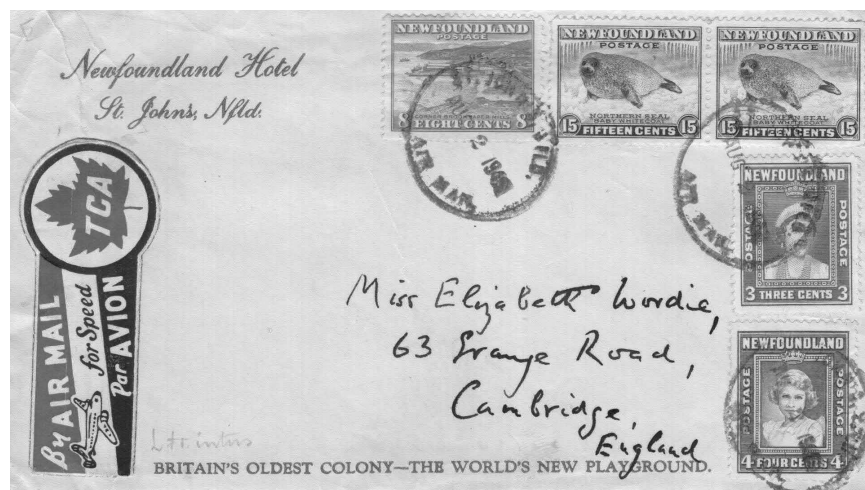 Newfoundland Hotel
St. John's, Nfld.
NEWFOUNDLAND
POSTAGE
8 EIGHT CENTS 8
NEWFOUNDLAND
POSTAGE
NORTHERN SEAL
BABY WHITECOAT
15 FIFTEEN CENTS 15
NEWFOUNDLAND
POSTAGE
NORTHERN SEAL
BABY WHITECOAT
15 FIFTEEN CENTS 15
AIR MAIL
AUG
NEWFOUNDLAND
POSTAGE POSTAGE
3 THREE CENTS 3
NEWFOUNDLAND
POSTAGE POSTAGE
4 FOUR CENTS 4
TCA
By AIR MAIL
for Speed
Par AVION
Miss Elizabeth Wordie,
63 Grange Road,
Cambridge,
England
BRITAIN'S OLDEST COLONY—THE WORLD'S NEW PLAYGROUND.